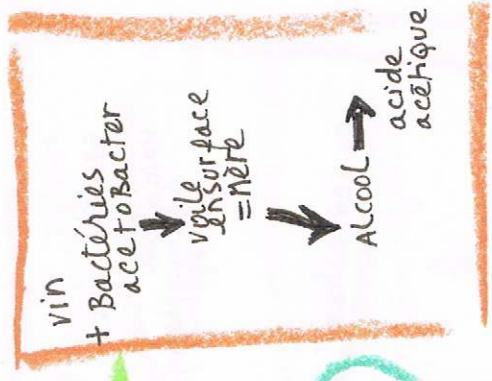 vin
+ Bactéries
acetoBacter
voile
en surface
=Mère
ALCOOL → acide
acétique